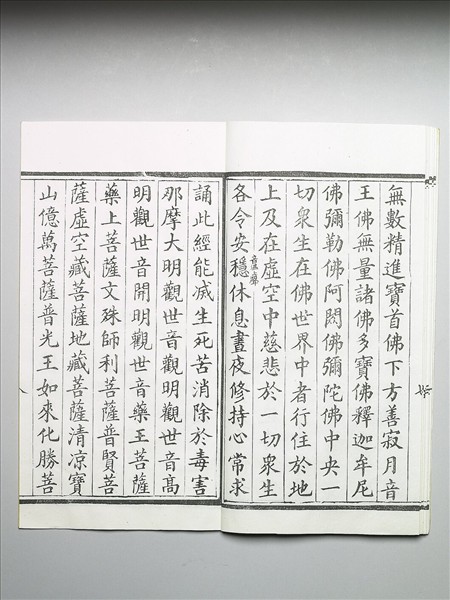 無數精進寶首佛下方善寂月音
王佛無量諸佛多寶佛釋迦牟尼
佛彌勒佛阿閦佛彌陀佛中央一
切衆生在佛世界中者行住於地
上及在虛空中慈悲於一切衆生
各令安穩休息晝夜修持心常求
誦此經能滅生死苦消除於毒害
那摩大明觀世音觀明觀世音高
明觀世音開明觀世音藥王菩薩
藥上菩薩文殊師利菩薩普賢菩
薩虛空藏菩薩地藏菩薩清凉寶
山億萬菩薩普光王如來化勝菩